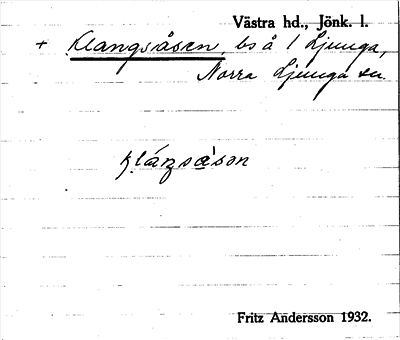 Västra hd., Jönk. l.
+ Klangsåsen, bs å 1 Ljunga,
Norra Ljunga sn.
Fritz Andersson 1932.